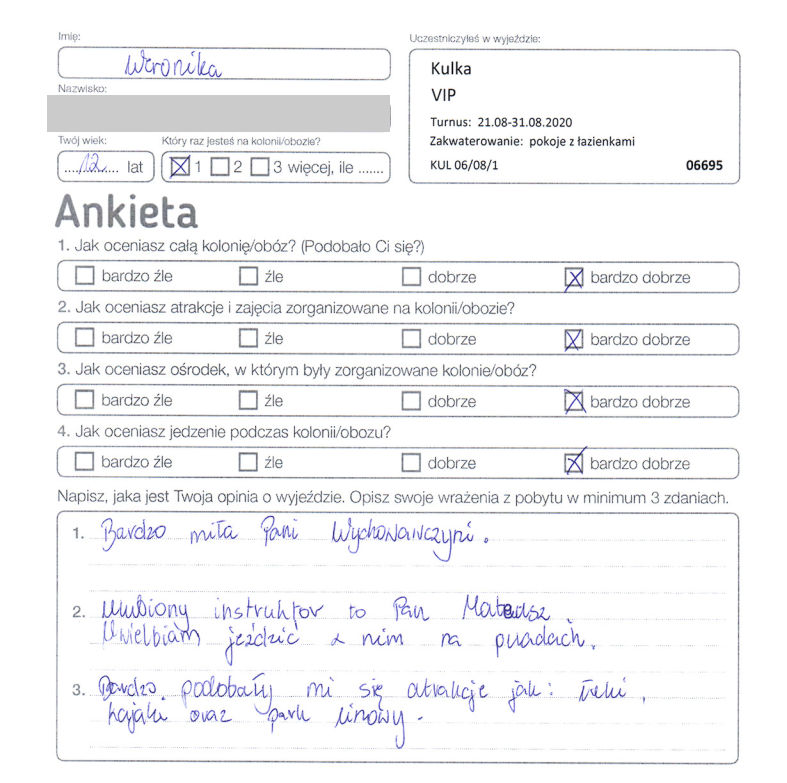 Imię:
Weronika
Nazwisko:
Twój wiek:
Który raz jesteś na kolonii/obozie?
....12.... lat
1 2 3 więcej, ile .......
Uczestniczyłeś w wyjeździe:
Kulka
VIP
Turnus: 21.08-31.08.2020
Zakwaterowanie: pokoje z łazienkami
KUL 06/08/1 06695
Ankieta
1. Jak oceniasz całą kolonię/obóz? (Podobało Ci się?)
bardzo źle źle dobrze bardzo dobrze
2. Jak oceniasz atrakcje i zajęcia zorganizowane na kolonii/obozie?
bardzo źle źle dobrze bardzo dobrze
3. Jak oceniasz ośrodek, w którym były zorganizowane kolonie/obóz?
bardzo źle źle dobrze bardzo dobrze
4. Jak oceniasz jedzenie podczas kolonii/obozu?
bardzo źle źle dobrze bardzo dobrze
Napisz, jaka jest Twoja opinia o wyjeździe. Opisz swoje wrażenia z pobytu w minimum 3 zdaniach.
1. Bardzo miła Pani Wychowawczyni.
2. Ulubiony instruktor to Pan Mateusz.
Uwielbiam jeździć z nim na quadach.
3. Bardzo podobały mi się atrakcje jak:
kajaki oraz park linowy.